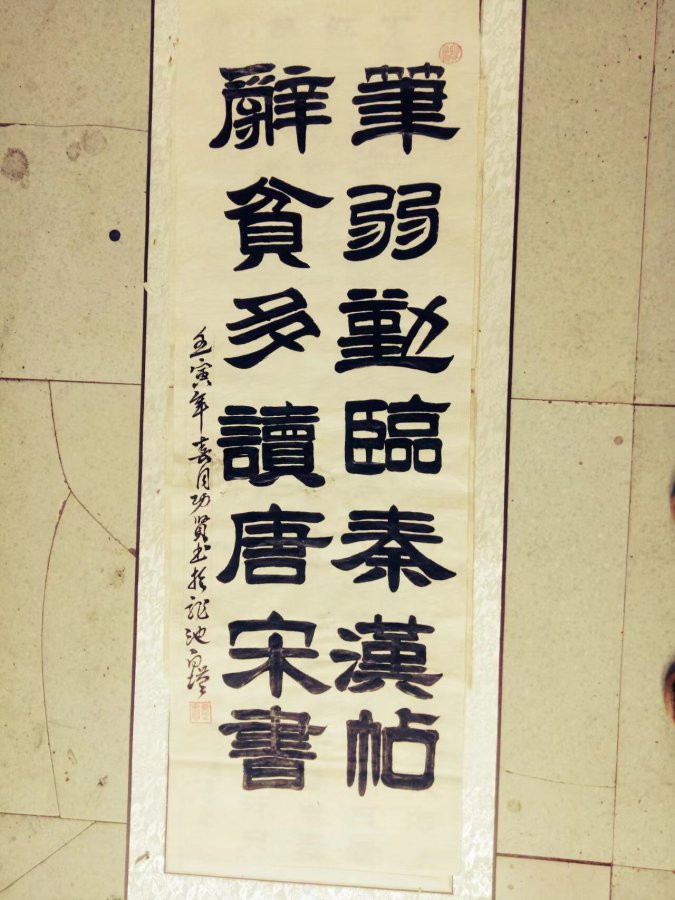 筆弱勤臨秦漢帖
辭貧多讀唐宋書
壬寅年春月功賢书於龍池